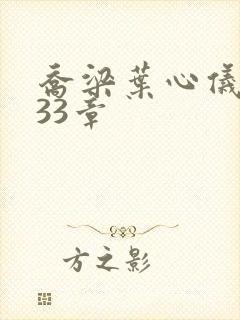 乔梁葉心儀
33章
方之影